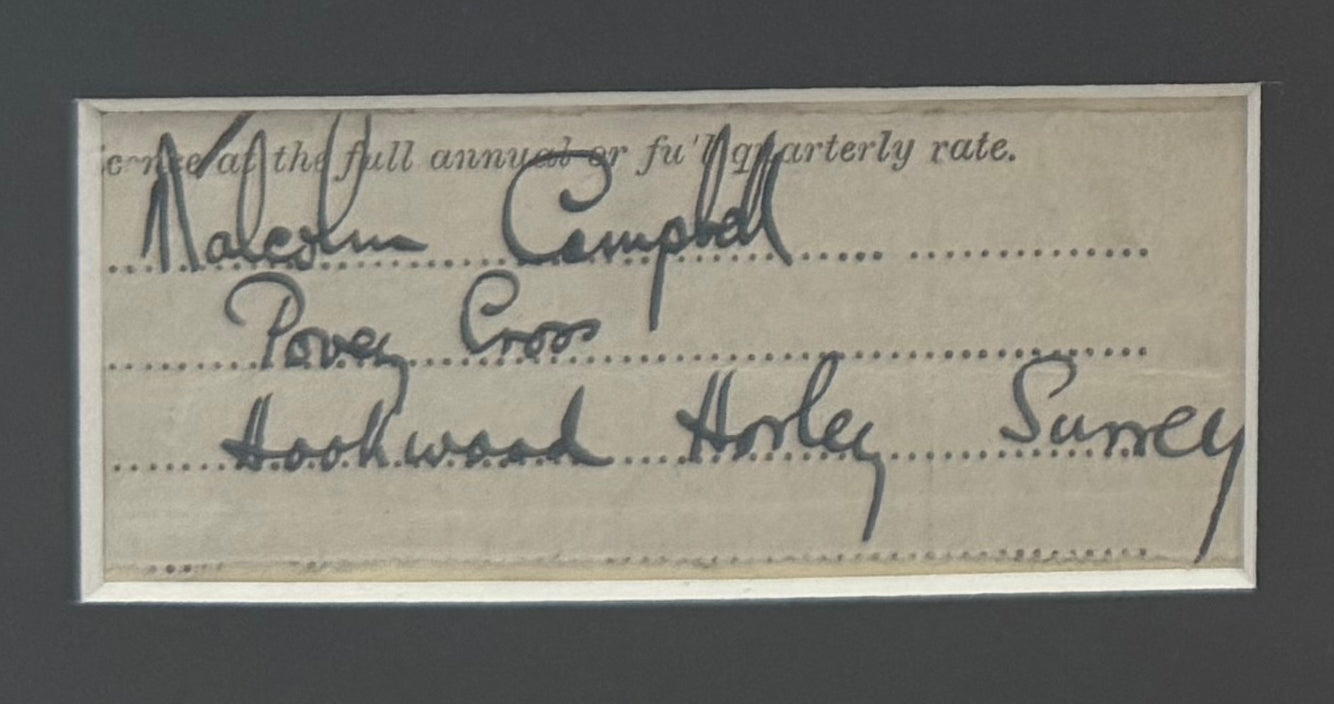 at the full annual or full quarterly rate.
Malcolm Campbell
Povey Cross
Hookwood Horley Surrey